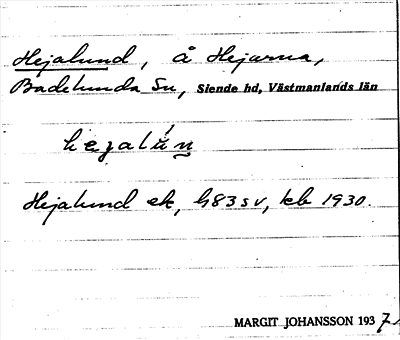 Hejalund, å Hejarna,
Badelunda Sn, Siende hd, Västmanlands län
hejalún
Hejalund ek, h83sv, kb 1930.
MARGIT JOHANSSON 1937.